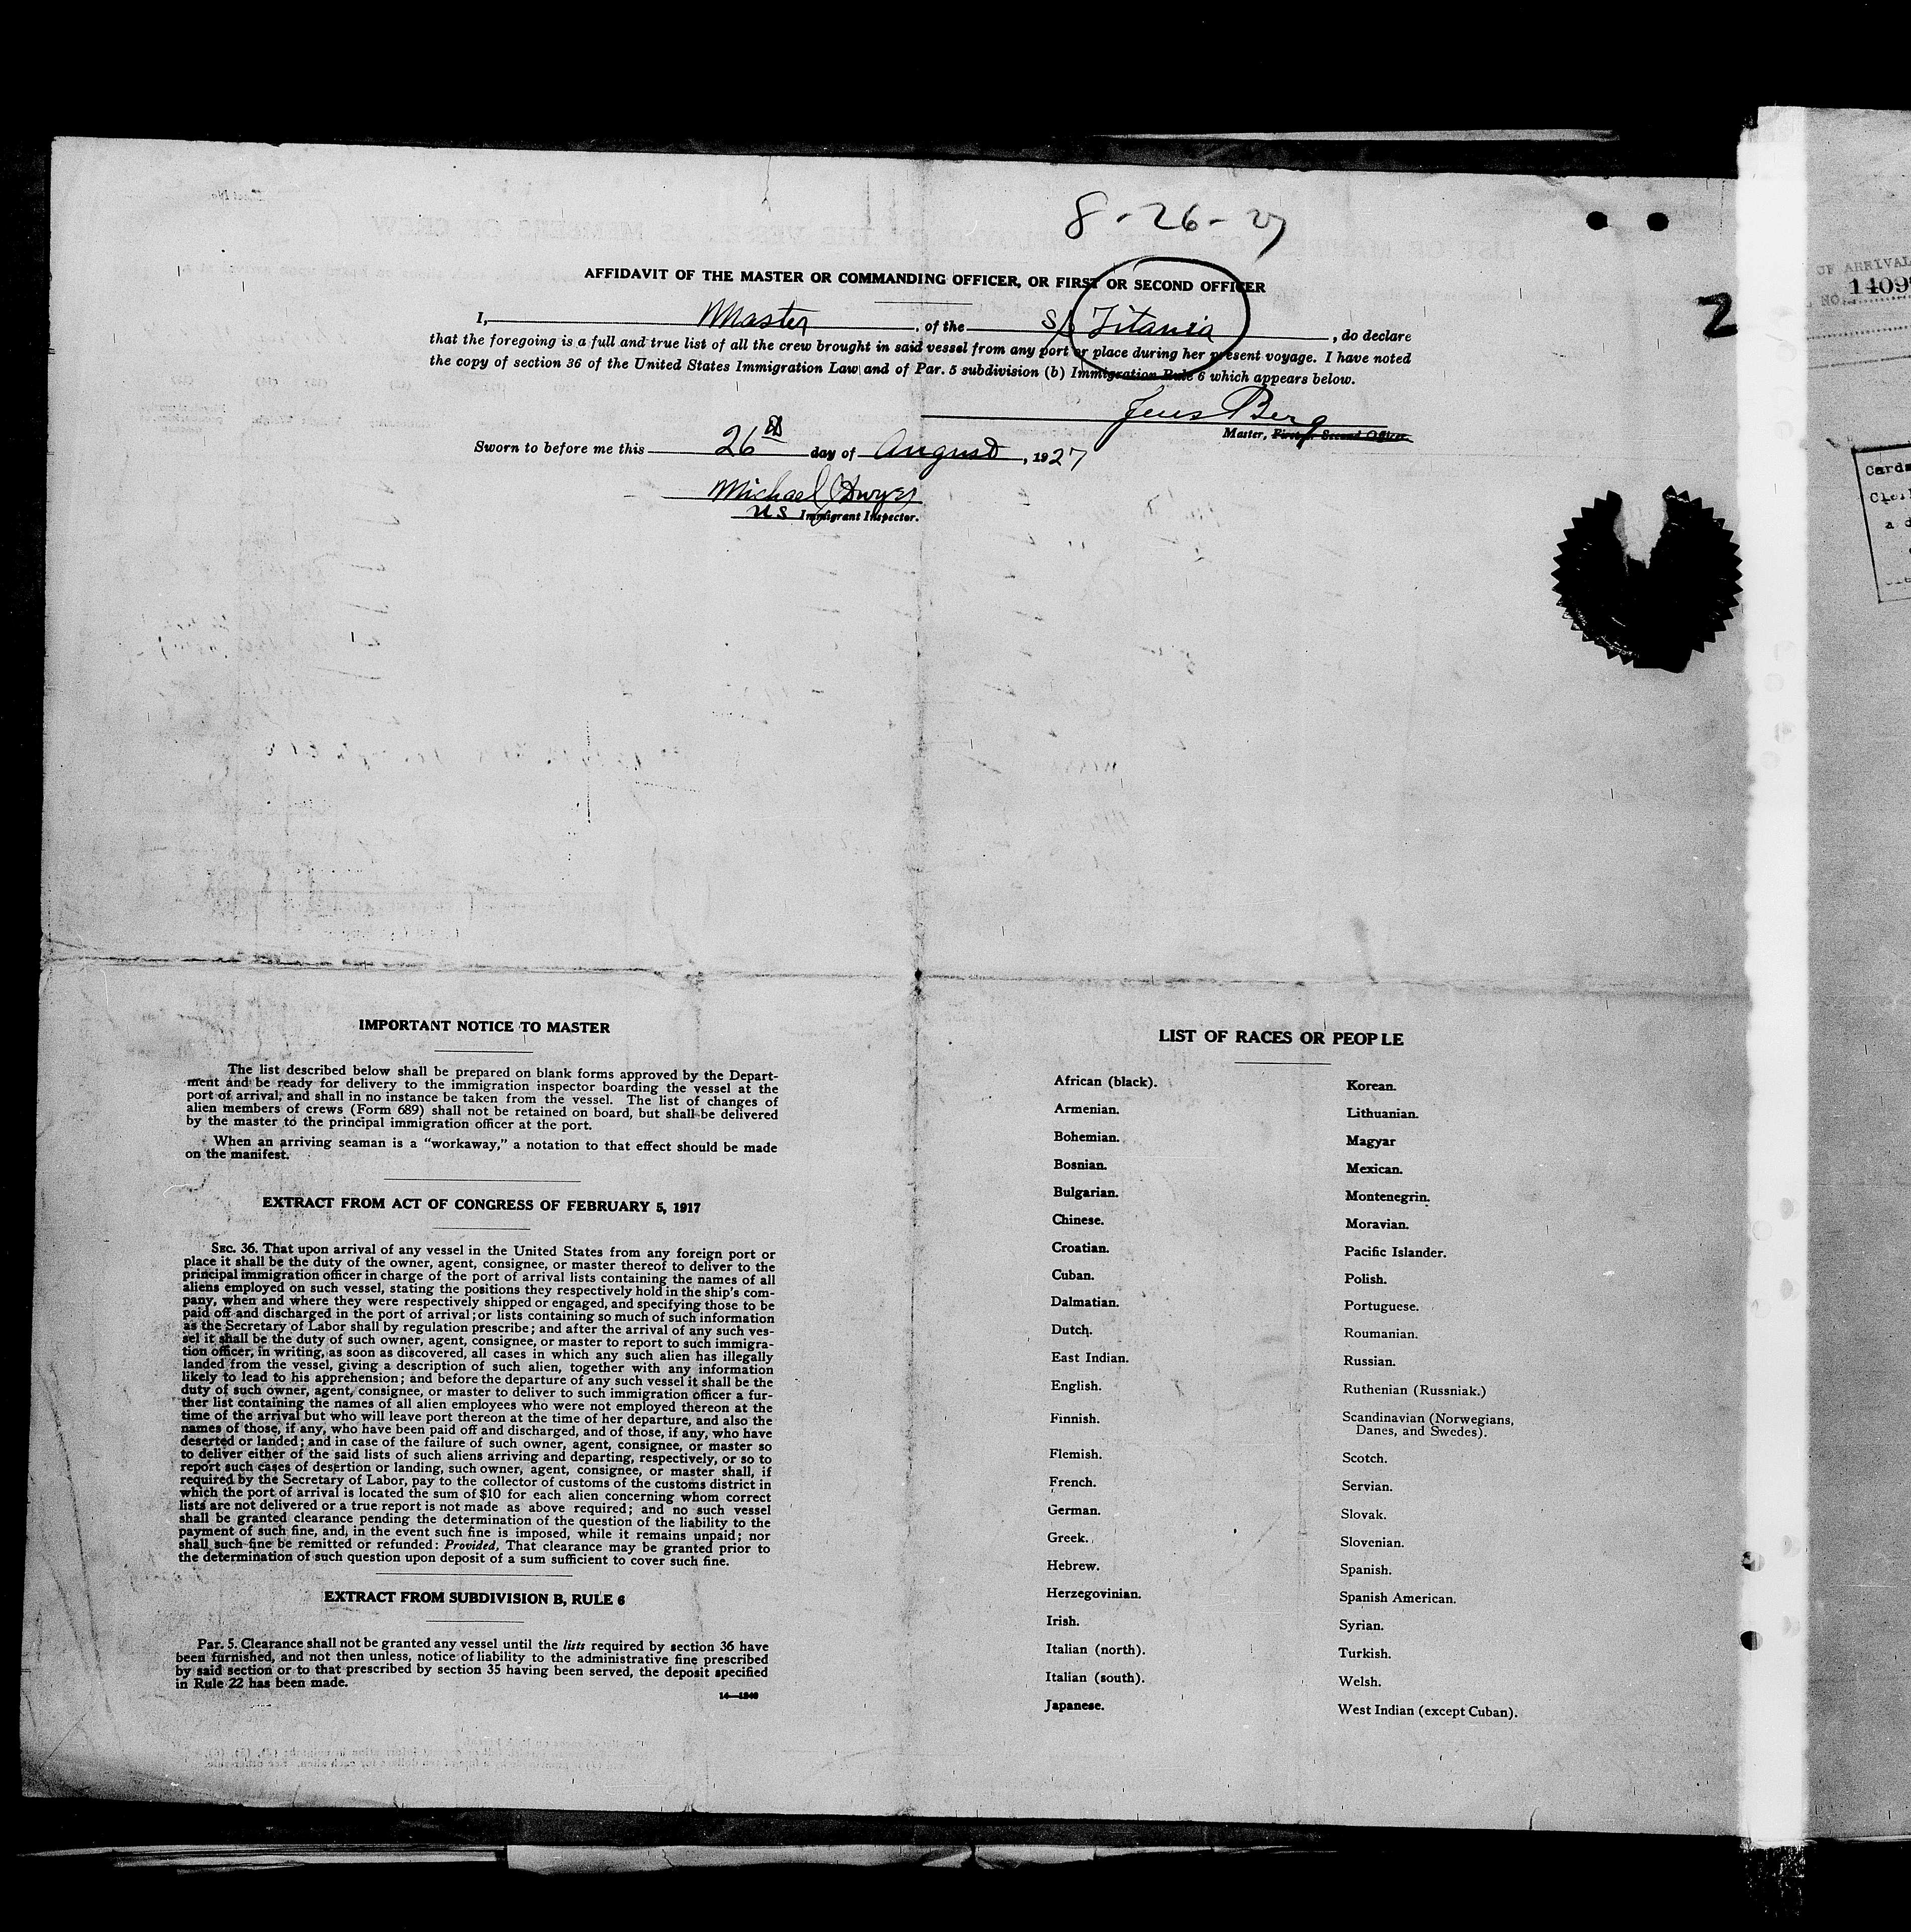 8-26-27
AFFIDAVIT OF THE MASTER OR COMMANDING OFFICER, OR FIRST OR SECOND OFFICER
I, Master, of the S/S Titania, do declare
that the foregoing is a full and true list of all the crew brought in said vessel from any port or place during her present voyage. I have noted
the copy of section 36 of the United States Immigration Law and of Par. 5 subdivision (b) Immigration Rule 6 which appears below.
Jens Berg
Master, First or Second Officer
Sworn to before me this 26th day of August, 1927
Michael Dwyer
U S Immigrant Inspector.
2
IMPORTANT NOTICE TO MASTER
The list described below shall be prepared on blank forms approved by the Depart-
ment and be ready for delivery to the immigration inspector boarding the vessel at the
port of arrival, and shall in no instance be taken from the vessel. The list of changes of
alien members of crews (Form 689) shall not be retained on board, but shall be delivered
by the master to the principal immigration officer at the port.
When an arriving seaman is a "workaway," a notation to that effect should be made
on the manifest.
EXTRACT FROM ACT OF CONGRESS OF FEBRUARY 5, 1917
SEC. 36. That upon arrival of any vessel in the United States from any foreign port or
place it shall be the duty of the owner, agent, consignee, or master thereof to deliver to the
principal immigration officer in charge of the port of arrival lists containing the names of all
aliens employed on such vessel, stating the positions they respectively hold in the ship's com-
pany, when and where they were respectively shipped or engaged, and specifying those to be
paid off and discharged in the port of arrival; or lists containing so much of such information
as the Secretary of Labor shall by regulation prescribe; and after the arrival of any such ves-
sel it shall be the duty of such owner, agent, consignee, or master to report to such immigra-
tion officer, in writing, as soon as discovered, all cases in which any such alien has illegally
landed from the vessel, giving a description of such alien, together with any information
likely to lead to his apprehension; and before the departure of any such vessel it shall be the
duty of such owner, agent, consignee, or master to deliver to such immigration officer a fur-
ther list containing the names of all alien employees who were not employed thereon at the
time of the arrival but who will leave port thereon at the time of her departure, and also the
names of those, if any, who have been paid off and discharged, and of those, if any, who have
deserted or landed; and in case of the failure of such owner, agent, consignee, or master so
to deliver either of the said lists of such aliens arriving and departing, respectively, or so to
report such cases of desertion or landing, such owner, agent, consignee, or master shall, if
required by the Secretary of Labor, pay to the collector of customs of the customs district in
which the port of arrival is located the sum of $10 for each alien concerning whom correct
lists are not delivered or a true report is not made as above required; and no such vessel
shall be granted clearance pending the determination of the question of the liability to the
payment of such fine, and, in the event such fine is imposed, while it remains unpaid; nor
shall such fine be remitted or refunded: Provided, That clearance may be granted prior to
the determination of such question upon deposit of a sum sufficient to cover such fine.
EXTRACT FROM SUBDIVISION B, RULE 6
Par. 5. Clearance shall not be granted any vessel until the lists required by section 36 have
been furnished, and not then unless, notice of liability to the administrative fine prescribed
by said section or to that prescribed by section 35 having been served, the deposit specified
in Rule 22 has been made.
LIST OF RACES OR PEOPLE
African (black).
Armenian.
Bohemian.
Bosnian.
Bulgarian.
Chinese.
Croatian.
Cuban.
Dalmatian.
Dutch.
East Indian.
English.
Finnish.
Flemish.
French.
German.
Greek.
Hebrew.
Herzegovinian.
Irish.
Italian (north).
Italian (south).
Japanese.
Korean.
Lithuanian.
Magyar
Mexican.
Montenegrin.
Moravian.
Pacific Islander.
Polish.
Portuguese.
Roumanian.
Russian.
Ruthenian (Russniak.)
Scandinavian (Norwegians,
Danes, and Swedes).
Scotch.
Servian.
Slovak.
Slovenian.
Spanish.
Spanish American.
Syrian.
Turkish.
Welsh.
West Indian (except Cuban).
OF ARRIVAL
NO. 1409